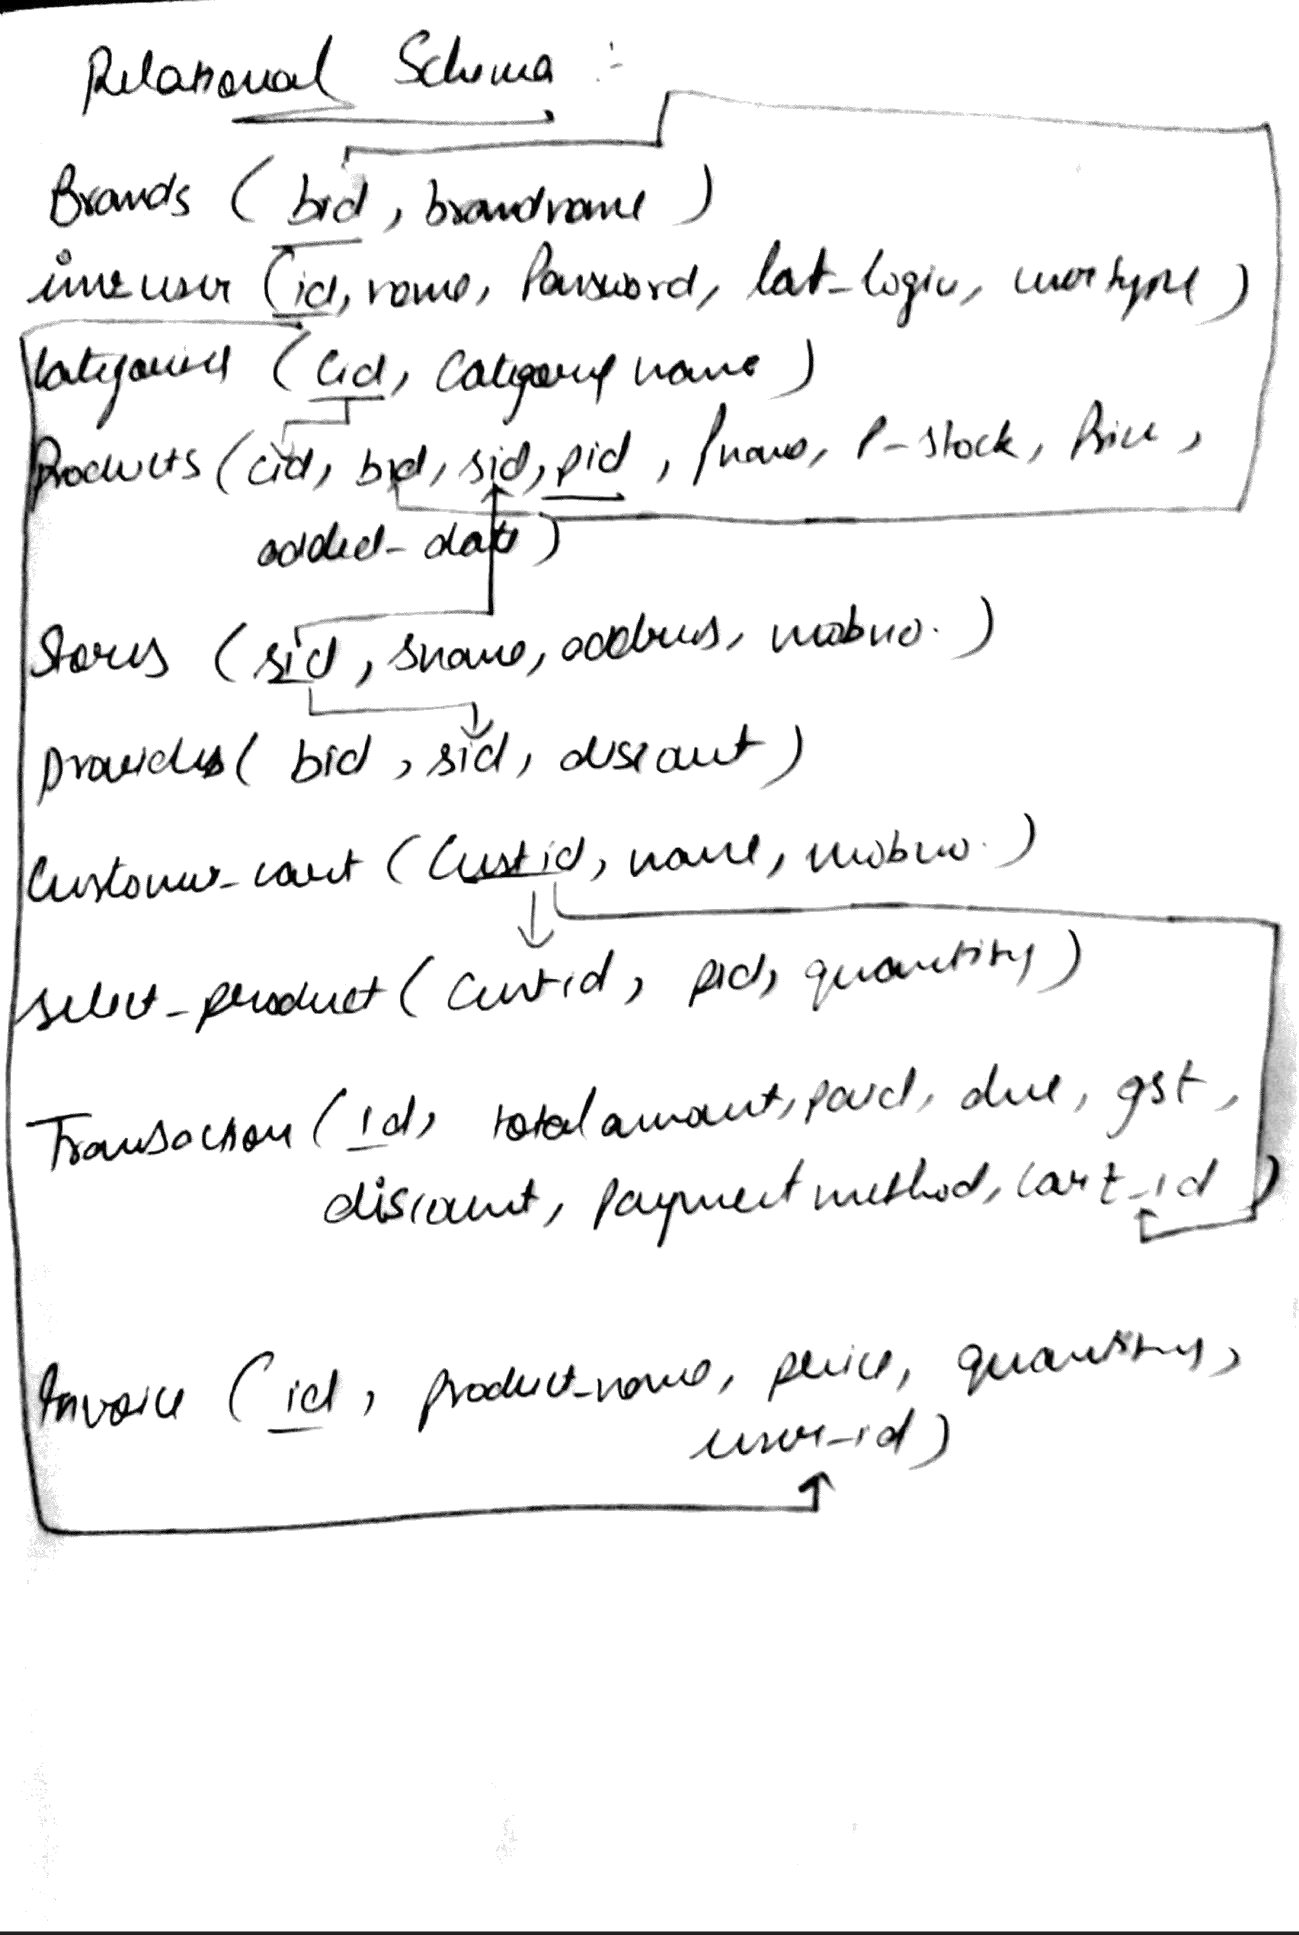 Relational Schema :-
Brands ( bid, brandname )
inv user ( id, name, Password, lat_login, usertype )
Categories ( Cid, Category name )
Products ( cid, bid, sid, pid, pname, P-stock, Price,
added-date )
Stores ( sid, sname, address, mobno. )
provides ( bid, sid, discount )
Customer-cart ( Custid, name, mobno. )
select-product ( Custid, pid, quantity )
Transaction ( id, total amount, paid, due, gst,
discount, Payment method, Cart_id )
Invoice ( id, product-name, price, quantity,
user-id )